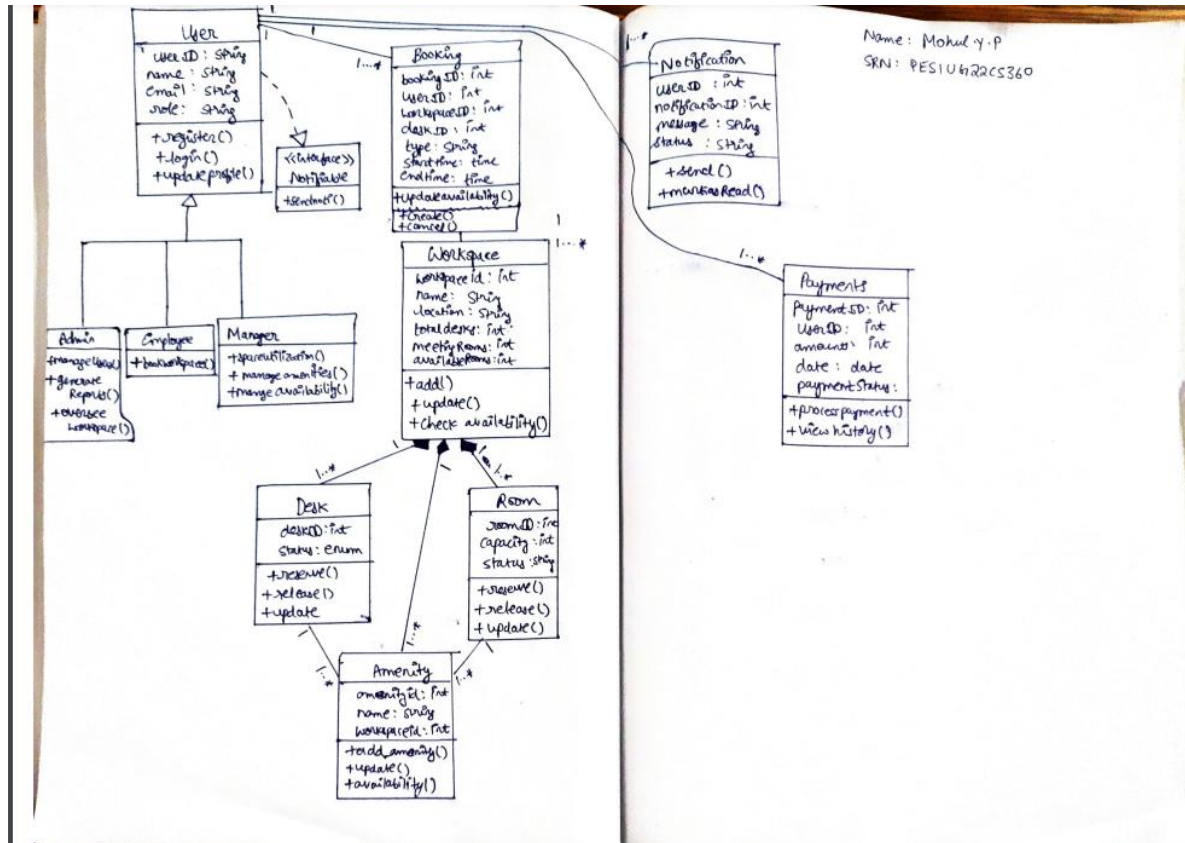 Name: Mohul.Y.P
SRN: PES1UG22CS360
1
1
1
User
userID: String
name: String
email: String
role: String
+register()
+login()
+updateprofile()
<<interface>>
Notifiable
+sendnoti()
1...*
Booking
bookingID: int
userID: int
workspaceID: int
deskID: int
type: String
starttime: time
endtime: time
+updateavailability()
+create()
+cancel()
1...*
Notification
userID: int
notificationID: int
message: String
status: String
+send()
+markasRead()
1
1...*
1...*
Payments
paymentID: int
UserID: int
amount: int
date: date
paymentStatus:
+processpayment()
+viewhistory()
Workspace
workspaceid: int
name: String
location: String
totaldesks: int
meetingRooms: int
availableRooms: int
+add()
+update()
+check availability()
Admin
+manageUsers()
+generate
Reports()
+oversee
workspace()
Employee
+bookworkspace()
Manager
+spaceutilization()
+manage amenities()
+mange availability()
1
1
1...*
1...*
Desk
deskID: int
status: enum
+reserve()
+release()
+update
Room
roomID: int
capacity: int
status: string
+reserve()
+release()
+update()
1
1...*
1
1...*
1...*
Amenity
amenityid: int
name: string
workspaceid: int
+add_amenity()
+update()
+availability()